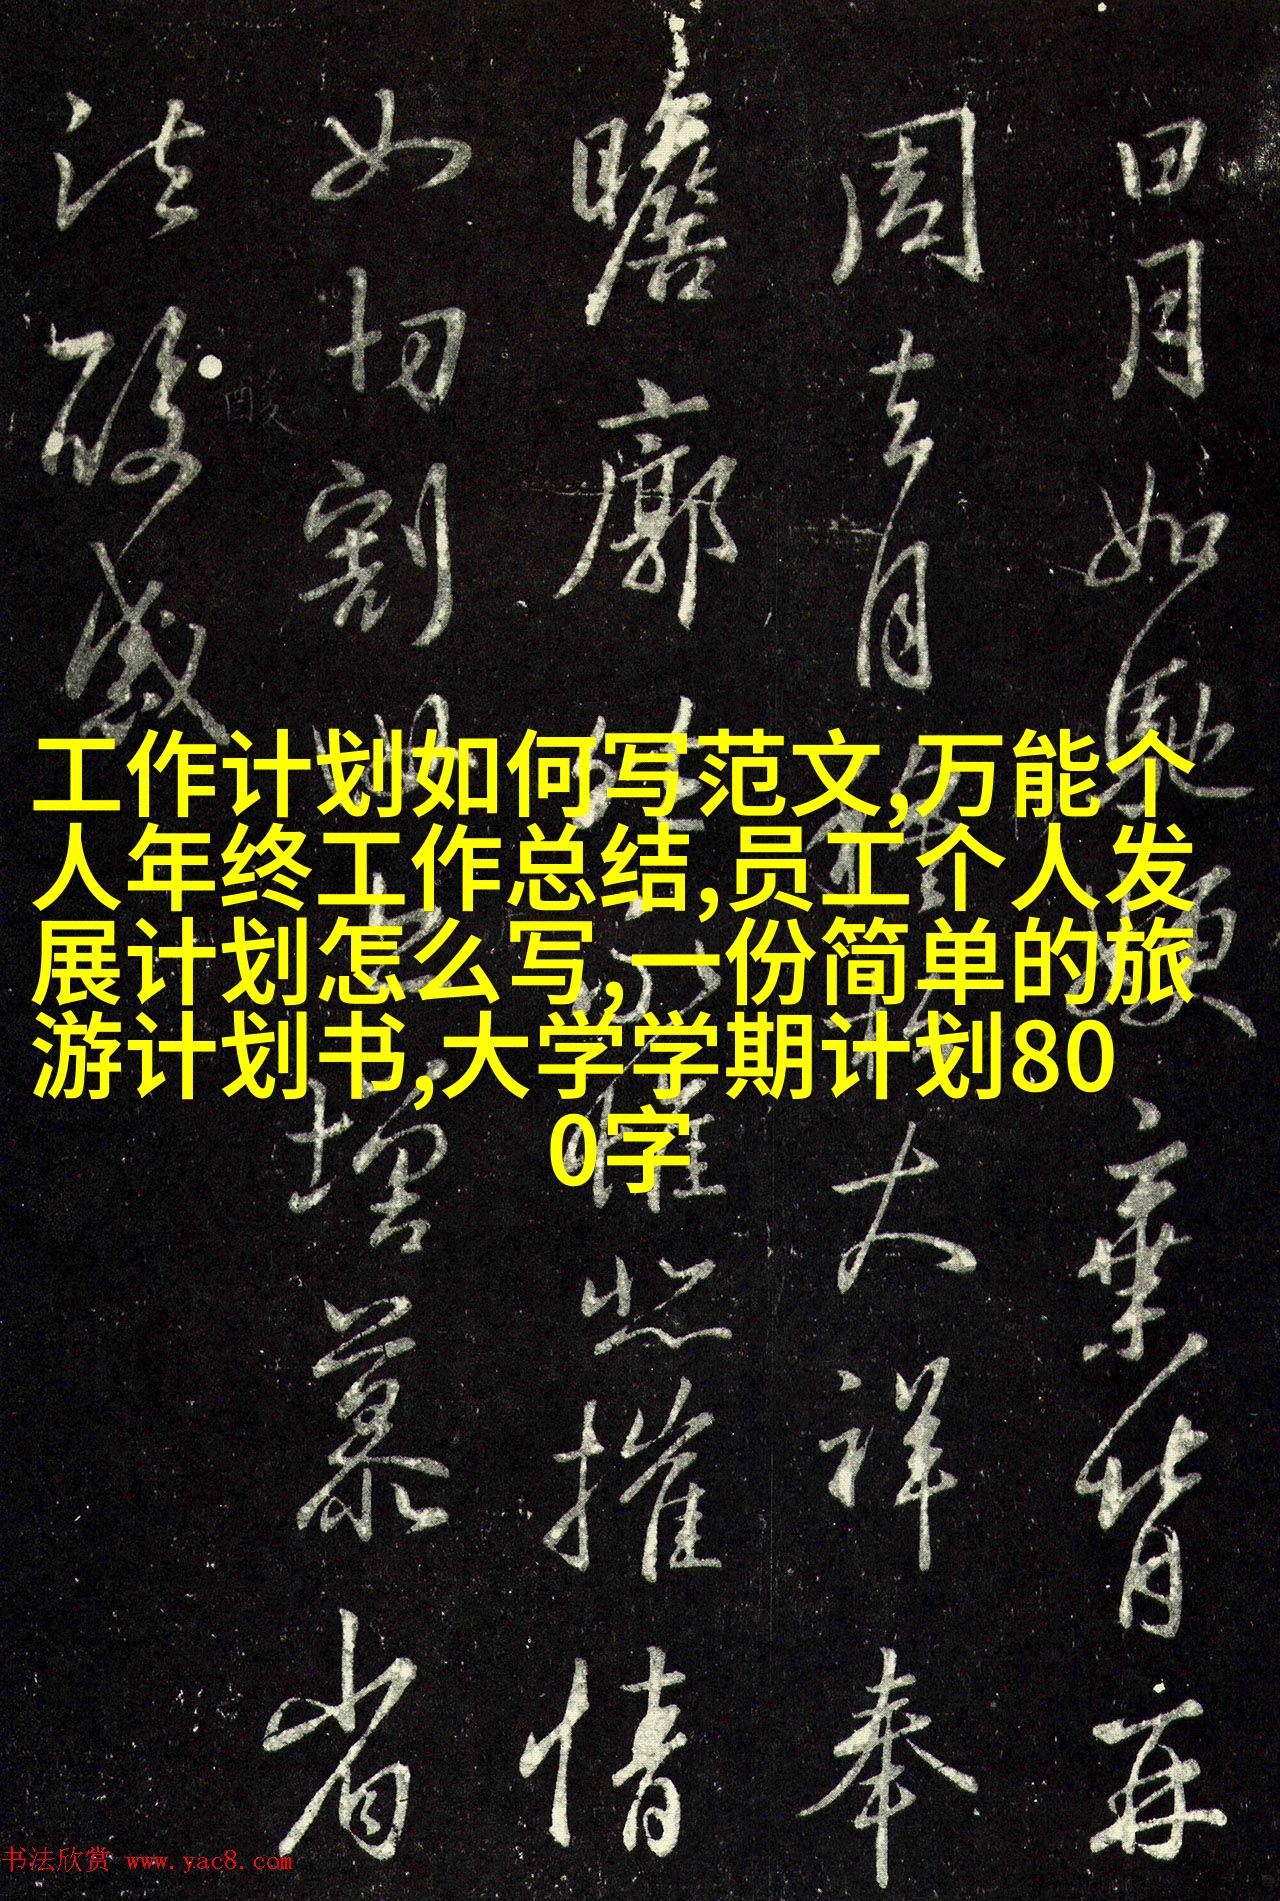 工作计划如何写范文,万能个
人年终工作总结,员工个人发
展计划怎么写,一份简单的旅
游计划书,大学学期计划80
0字
日月如馳棄背再
周去月穆松大祥奉
瞻廓永惟悲摧情
如切割增慕省
酸感
酸
书法欣赏 www.yac8.com